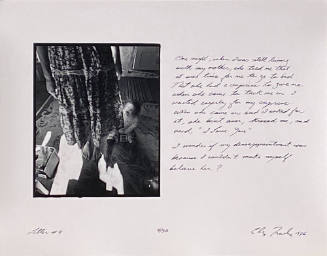 One night, when I was still living
with my mother, she told me that
it was time for me to go to bed.
That she had a surprise to give me
when she came to tuck me in. I
waited eagerly for my surprise.
When she came in and I asked for
it, she bent over, kissed me, and
said, "I love you"
I wonder if my disappointment was
because I couldn't make myself
believe her?
Letter # 9
1986